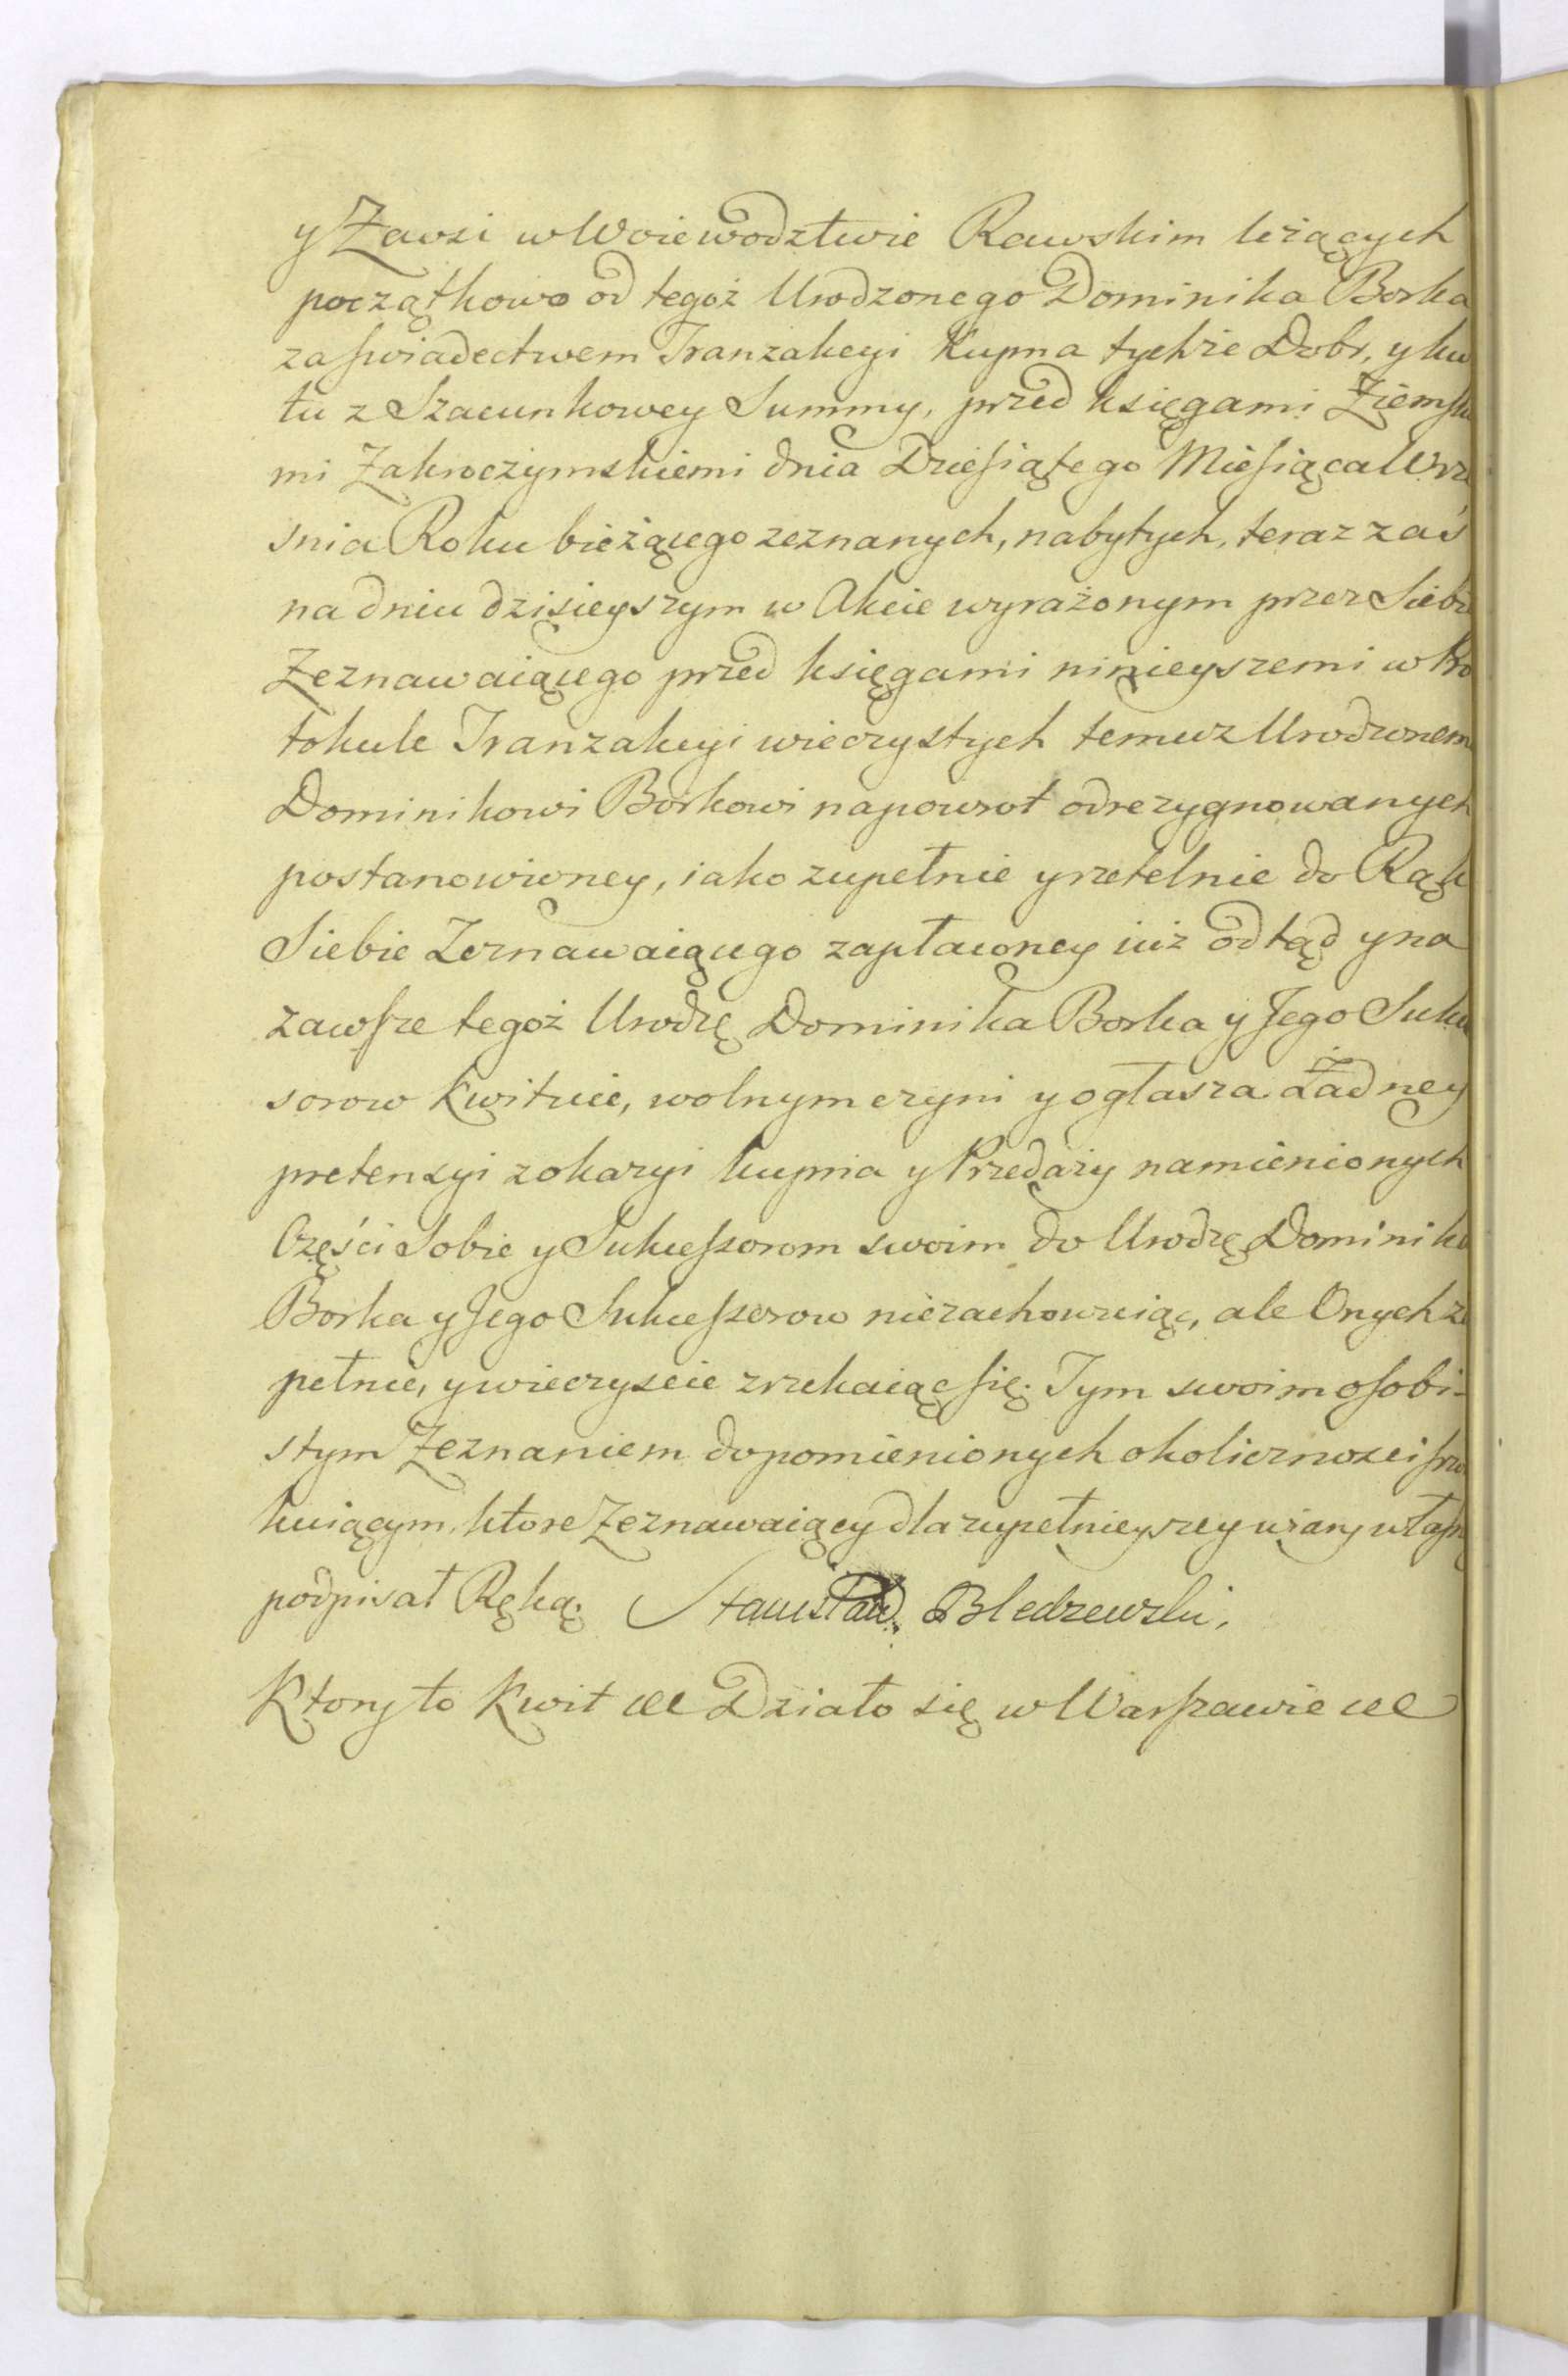 y Zawsi w Woiewodztwie Rawskim leżących
początkowo od tegoż Urodzonego Dominika Borka
za swiadectwem Tranzakcyi Kupna tychże Dobr, y kwi
tu z Szacunkowey Summy, przed księgami Ziemski
mi Zakroczymskiemi dnia Dziesiątego Miesiąca Wrze
snia Roku bieżącego zeznanych, nabytych, teraz zaś
na dniu dzisieyszym w Akcie wyrażonym przez Siebie
Zeznawaiącego przed księgami ninieyszemi w Pro
tokule Tranzakcyi wieczystych temuz Urodzonem
Dominikowi Borkowi napowrot odrezygnowanych
postanowioney, iako zupełnie y rzetelnie do Rąk
Siebie Zeznawaiącego zapłaconey iuż odtąd y na
zawsze tegoż Urodzę Dominika Borka y Jego Sukce
sorow Kwituie, wolnym czyni y ogłasza Żadney
pretensyi z okazyi kupna y Przedaży namienionych
Części Sobie y Sukcessorom swoim do Urodzę Dominika
Borka y Jego Sukcessorow niezachowuiąc, ale Onych zu
pełnie, y wieczyscie zrzekaiąc się. Tym swoim osobi-
stym Zeznaniem dopomienionych okolicznosci
kuiącym, ktore Zeznawaiący dla zupełnieyszey wiary własną
podpisał Ręką. Stanisław Bledzewski.
Ktory to Kwit etc Działo się w Warszawie etc